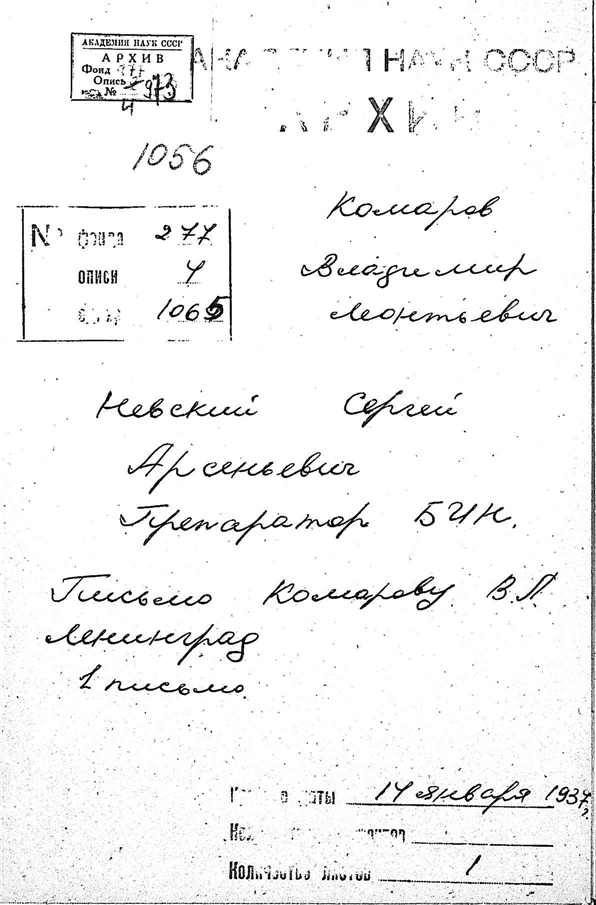 АКАДЕМИЯ НАУК СССР
АРХИВ
Фонд 277
Опись
№ 973
4
АКАДЕМИЯ НАУК СССР
АРХИВ
1056
№ фонда 277
описи 4
1065
Комаров
Владимир
Леонтьевич
Невский Сергей
Арсеньевич
Препаратор БИН.
Письмо Комарову В.Л.
Ленинград
1 письмо.
даты 14 января 1937,
Количество листов 1